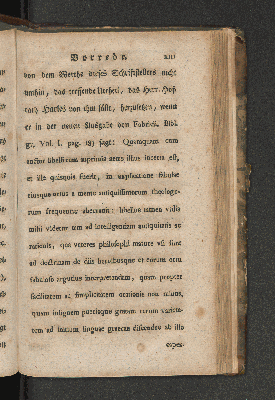 Vorrede. XIII
von dem Werthe dieses Schriftstellers nicht
umhin, das treffende Urtheil, das Herr Hof-
rath Harles von ihm fällt, herzusetzen, wenn
er in der neuen Ausgabe von Fabricii Bibl.
gr. Vol. I. pag. sagt: Quamquam cum
auctor libelli tum ageneris aetas illius incerta est,
et ille quisquis fuerit, in explicatione fabulae
eiusque ortus a mente antiquissimorum theologo-
rum frequenter aberravit: libellus tamen valis
mihi videtur tum ad intelligendam antiquitatis
rationem, qua veteres philosophi mature usi sunt
ad doctrinam de diis heroibusque et eorum ortu
fabuloso argutius interpretandam, quam propter
facilitatem ac simplicitatem orationis non minus,
quam insignem puerisque gratam rerum varieta-
tem ad initium linguae graecae discendae ab illo
capes-